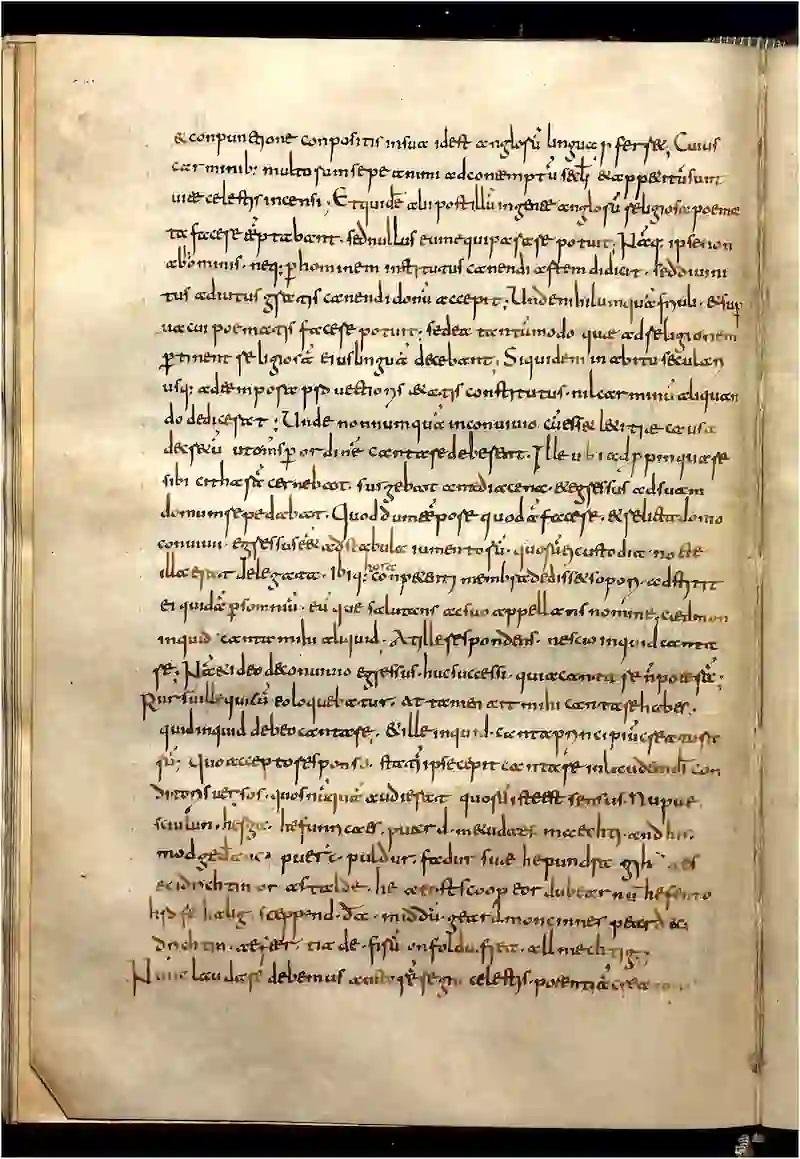 & conpunctione conpositis in sua id est anglorū lingua proferret, Cuius
carminib; multorum sepe animi ad contemptū scl̄i & appetitū sunt
vitae celestis incensi; Et quidē alii post illū in gente anglorū religiosa poema
ta facere tēptabant. sed nullus eum equiparare potuit; Nāq; ipse non
ab hominib; neq; p̄ hominem institutus canendi artem didicit. sed divini
tus adiutus gratis canendi donū accepit; Unde nihil umquā frivoli. & sup̄
vacui poematis facere potuit. sed ea tantūmodo quae ad religionem
p̄tinent religiosā eius linguā decebant; Siquidem in abitu seculari
usq; ad tempora provectioris aetatis constitutus. nil carminū aliquan
do dedicerat; Unde nonnumquā in convivio cū esset letitiae causa
decretū ut omnes p̄ ordinē cantare deberent. Ille ubi adpropinquare
sibi citharā cernebat. surgebat a media cena. & egressus ad suam
domum repedabat. Quod dum tēpore quodā faceret. & relicta domo
convivii egressus eēt ad stabula iumentorū. quorū ei custodia nocte
illa erat delegata. Ibiq; hora conpetenti membra dedisset sopori. adstitit
ei quidā p̄ somniū. eūque salutans ac suo appellans nomine; cędmon
inquid canta mihi aliquid. At ille respondens. nescio inquid canta
re; Nā & ideo de convivio egressus. huc successi. quia cantare n̄ poterā;
Rursū ille qui cū eo loquebatur. at tamen ait mihi cantare habes.
quid inquid debeo cantare. & ille inquid. canta principiū creatura
rū; Quo accepto responso. statī ipse cepit cantare in laudem dī con
ditoris versos. quos nūquā audierat quorū iste est sensus. Nu pue
sciulun herga. hefunricaes. puard. metudaes maechti. and his
modgedanc. puerc puldur. fadur suae he pundra gihuaes
eci drichtin or astalde. he aerist scoop
hrofe halig. sceppend. middū. geard. moncinnes peard eci
drichtin. aefter. tiade. firū on foldu. frea. allmechtig;
Nunc laudare debemus auctorē regni celestis. potentiā